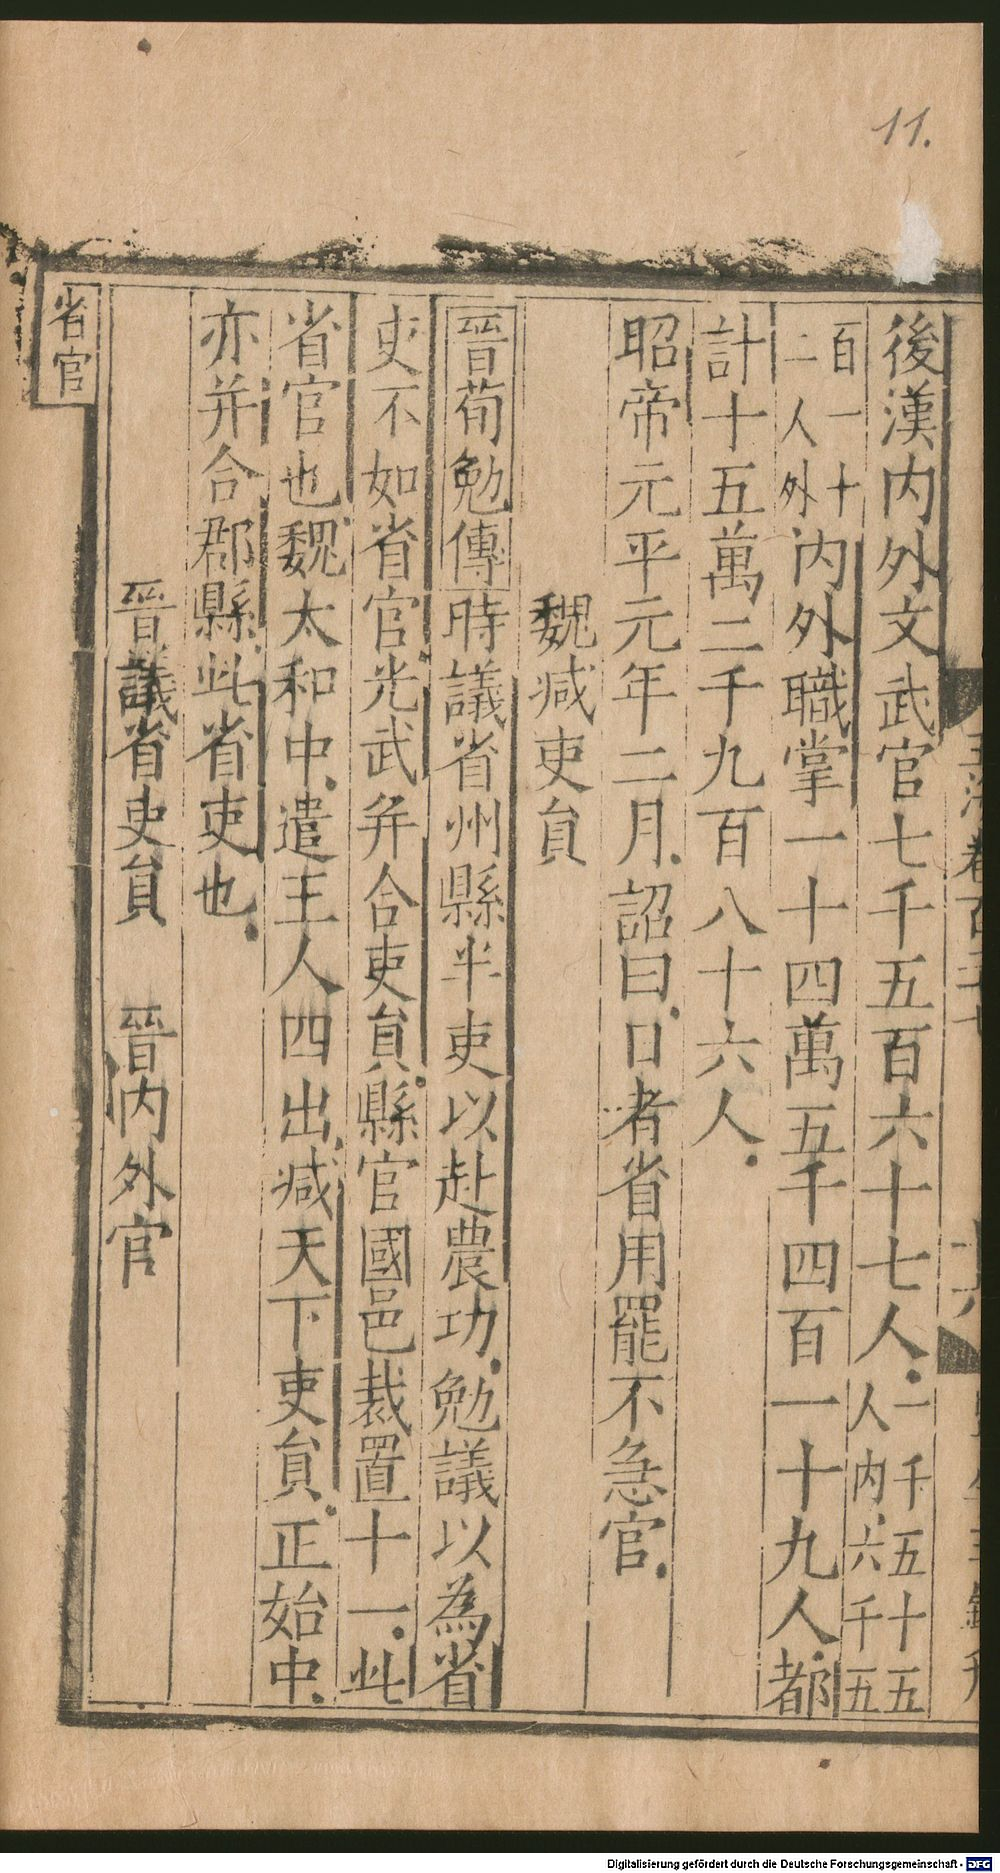 11.
後漢内外文武官七千五百六十七人一千五十五人内六千五
百一十二人外内外職掌一十四萬五千四百一十九人都
計十五萬二千九百八十六人
昭帝元平元年二月詔曰日者省用罷不急官
魏减吏貟
晉荀勉傳時議省州縣半吏以赴農功勉議以為省
吏不如省官光武并合吏貟縣官國邑裁置十一此
省官也魏太和中遣王人四出减天下吏貟正始中
亦并合郡縣此省吏也
晉議省吏貟　晉内外官
省官
Digitalisierung gefördert durch die Deutsche Forschungsgemeinschaft - DFG